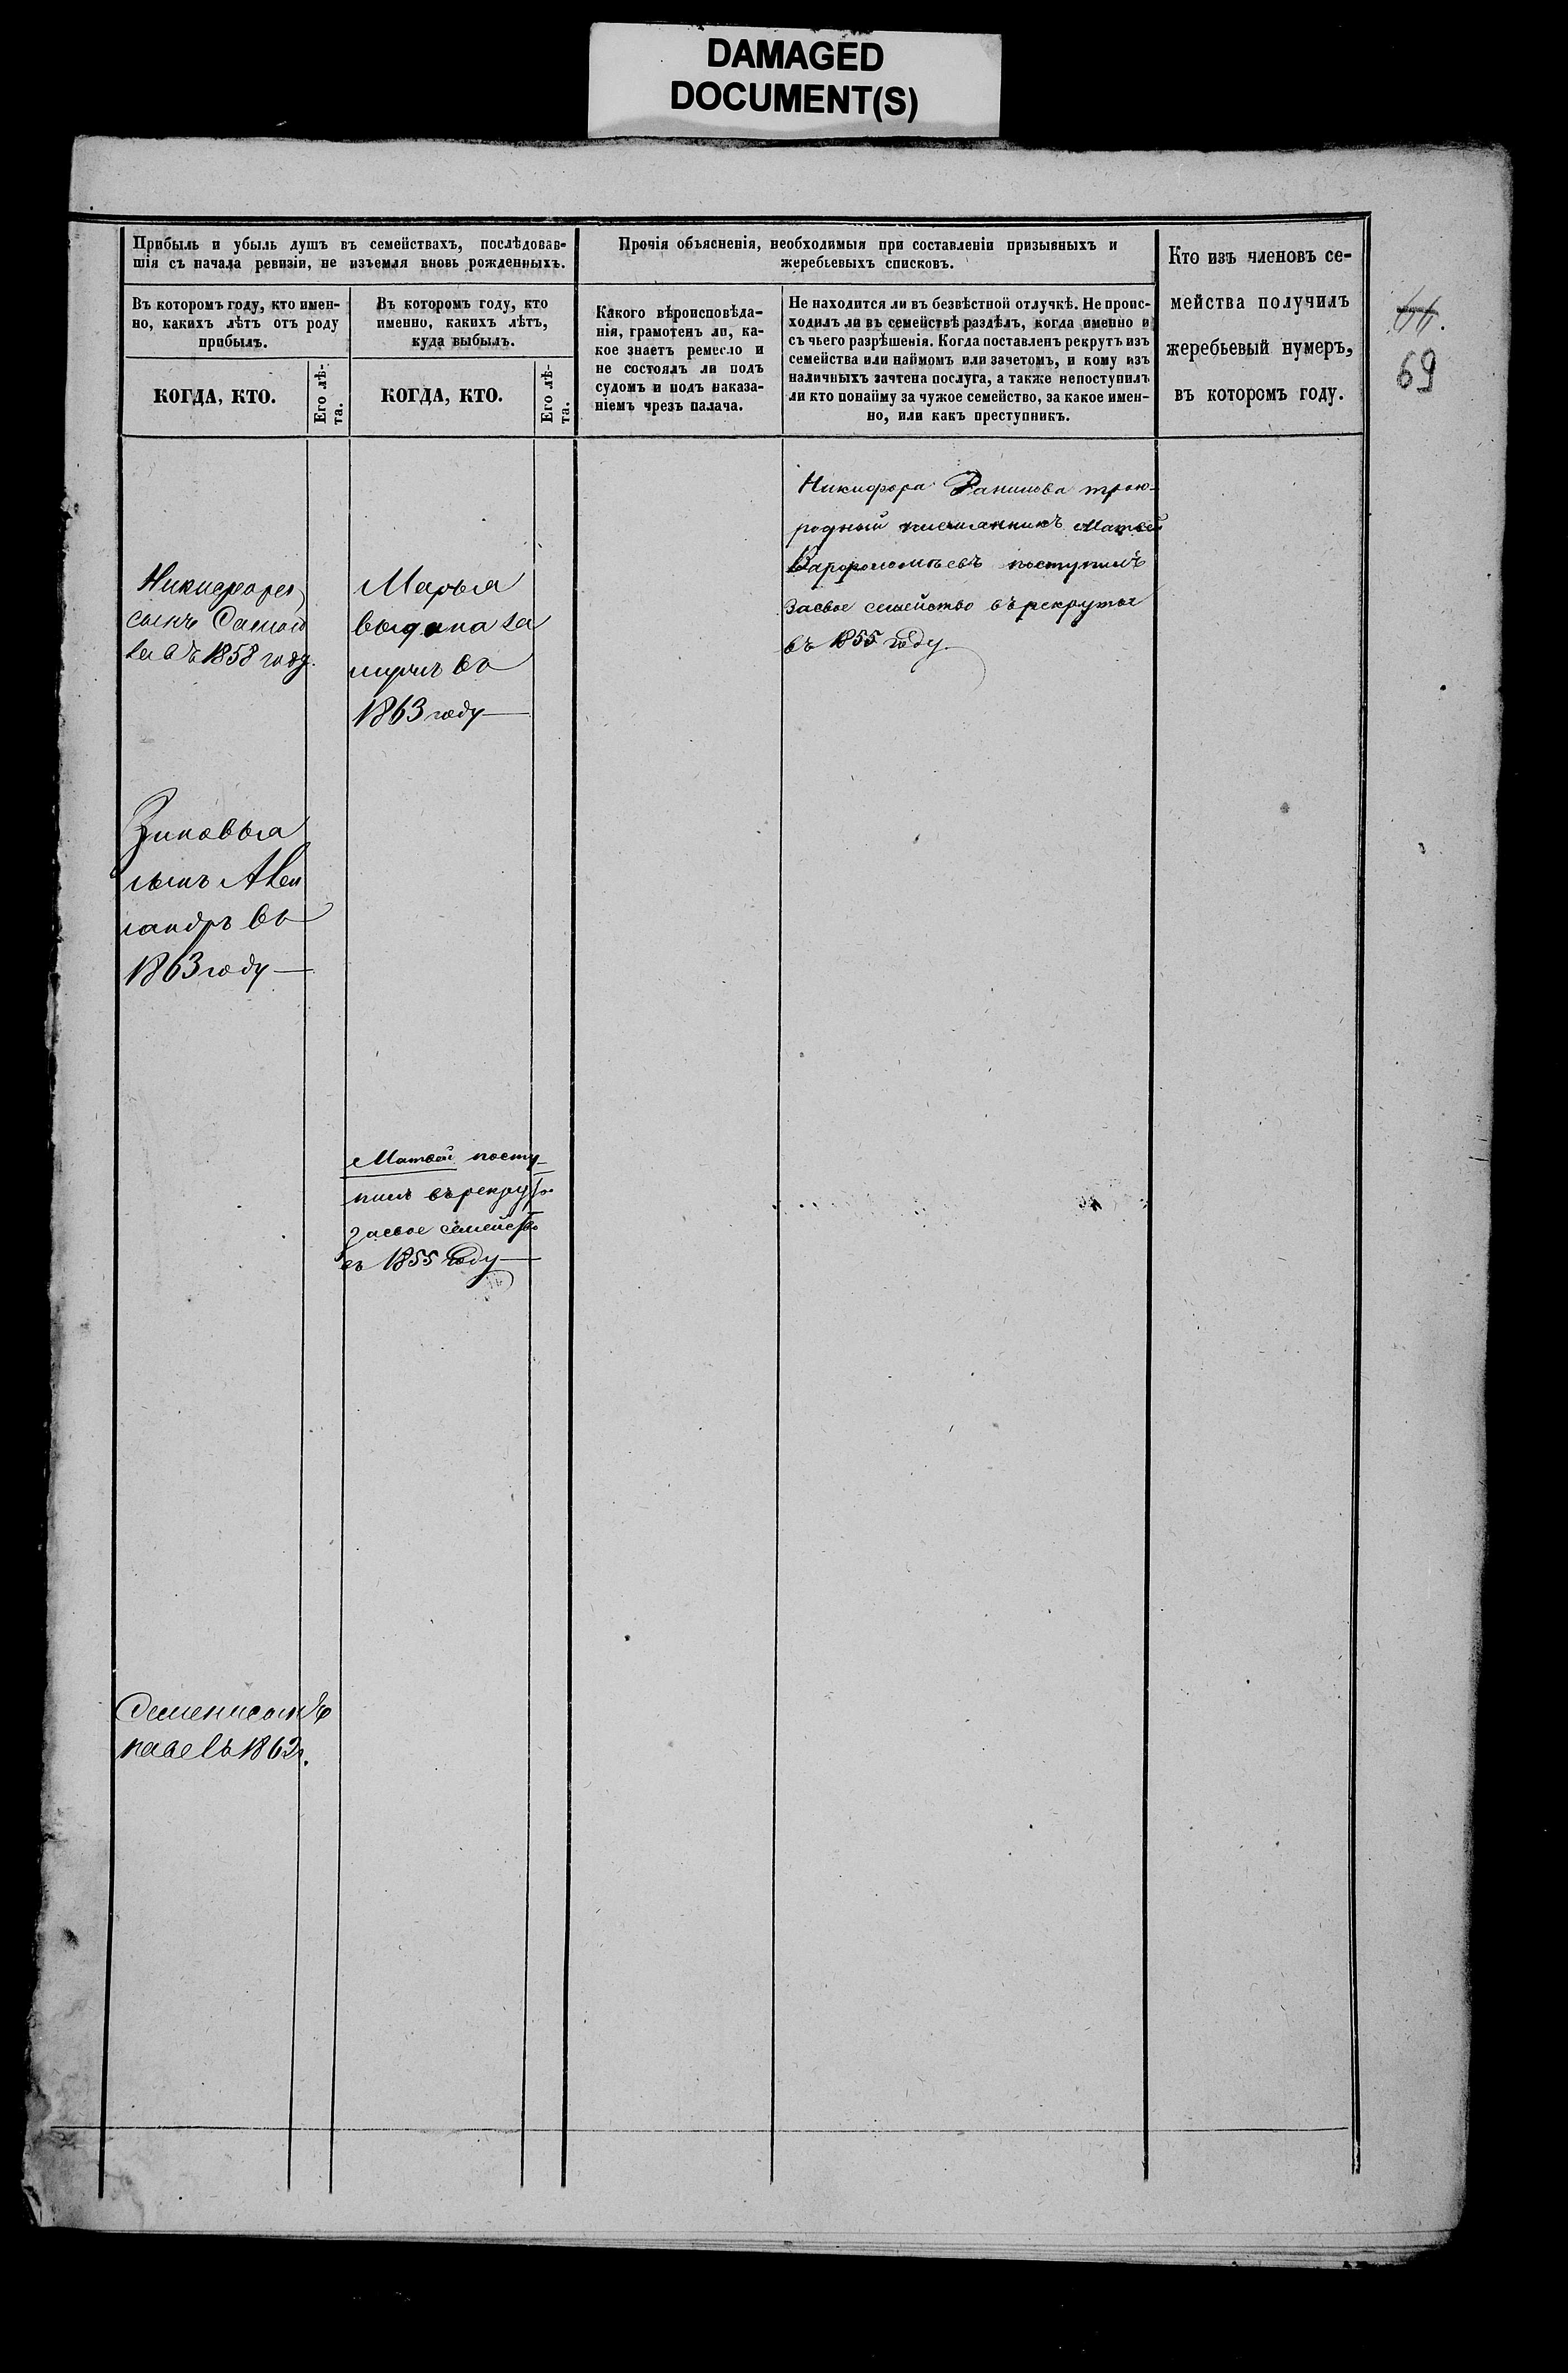 DAMAGED
DOCUMENT(S)
Прибыль и убыль душъ въ семействахъ, послѣдовав-
шія съ начала ревизіи, не изъемля вновь рожденныхъ.
Прочія объясненія, необходимыя при составленіи призывныхъ и
жеребьевыхъ списковъ.
Кто изъ членовъ се-
мейства получилъ
жеребьевый нумеръ,
въ которомъ году.
69
Въ которомъ году, кто имен-
но, какихъ лѣтъ отъ роду
прибылъ.
Въ которомъ году, кто
именно, какихъ лѣтъ,
куда выбылъ.
Какого вѣроисповѣда-
нія, грамотенъ ли, ка-
кое знаетъ ремесло и
не состоялъ ли подъ
судомъ и подъ наказа-
ніемъ чрезъ палача.
Не находится ли въ безвѣстной отлучкѣ. Не проис-
ходилъ ли въ семействѣ раздѣлъ, когда именно и
съ чьего разрѣшенія. Когда поставленъ рекрутъ изъ
семейства или наймомъ или зачетомъ, и кому изъ
наличныхъ зачтена послуга, а также непоступилъ
ли кто понайму за чужое семейство, за какое имен-
но, или какъ преступникъ.
КОГДА, КТО.
Его лѣ-
та.
КОГДА, КТО.
Его лѣ-
та.
Никифора
сынъ
въ 1858 году.
Марья
выдана за
мужъ въ
1863 году
Никифора Данилова трою-
родный племянникъ Матвей
Варфоломѣевъ поступилъ
засвое семейство върекруты
въ 1855 году
Зиновья
сынъ Алек
сандръ въ
1863 году
Матвей посту-
пилъ върекруты
засвое семейство
въ 1855 году
Семена сынъ
павелъ 1862г.